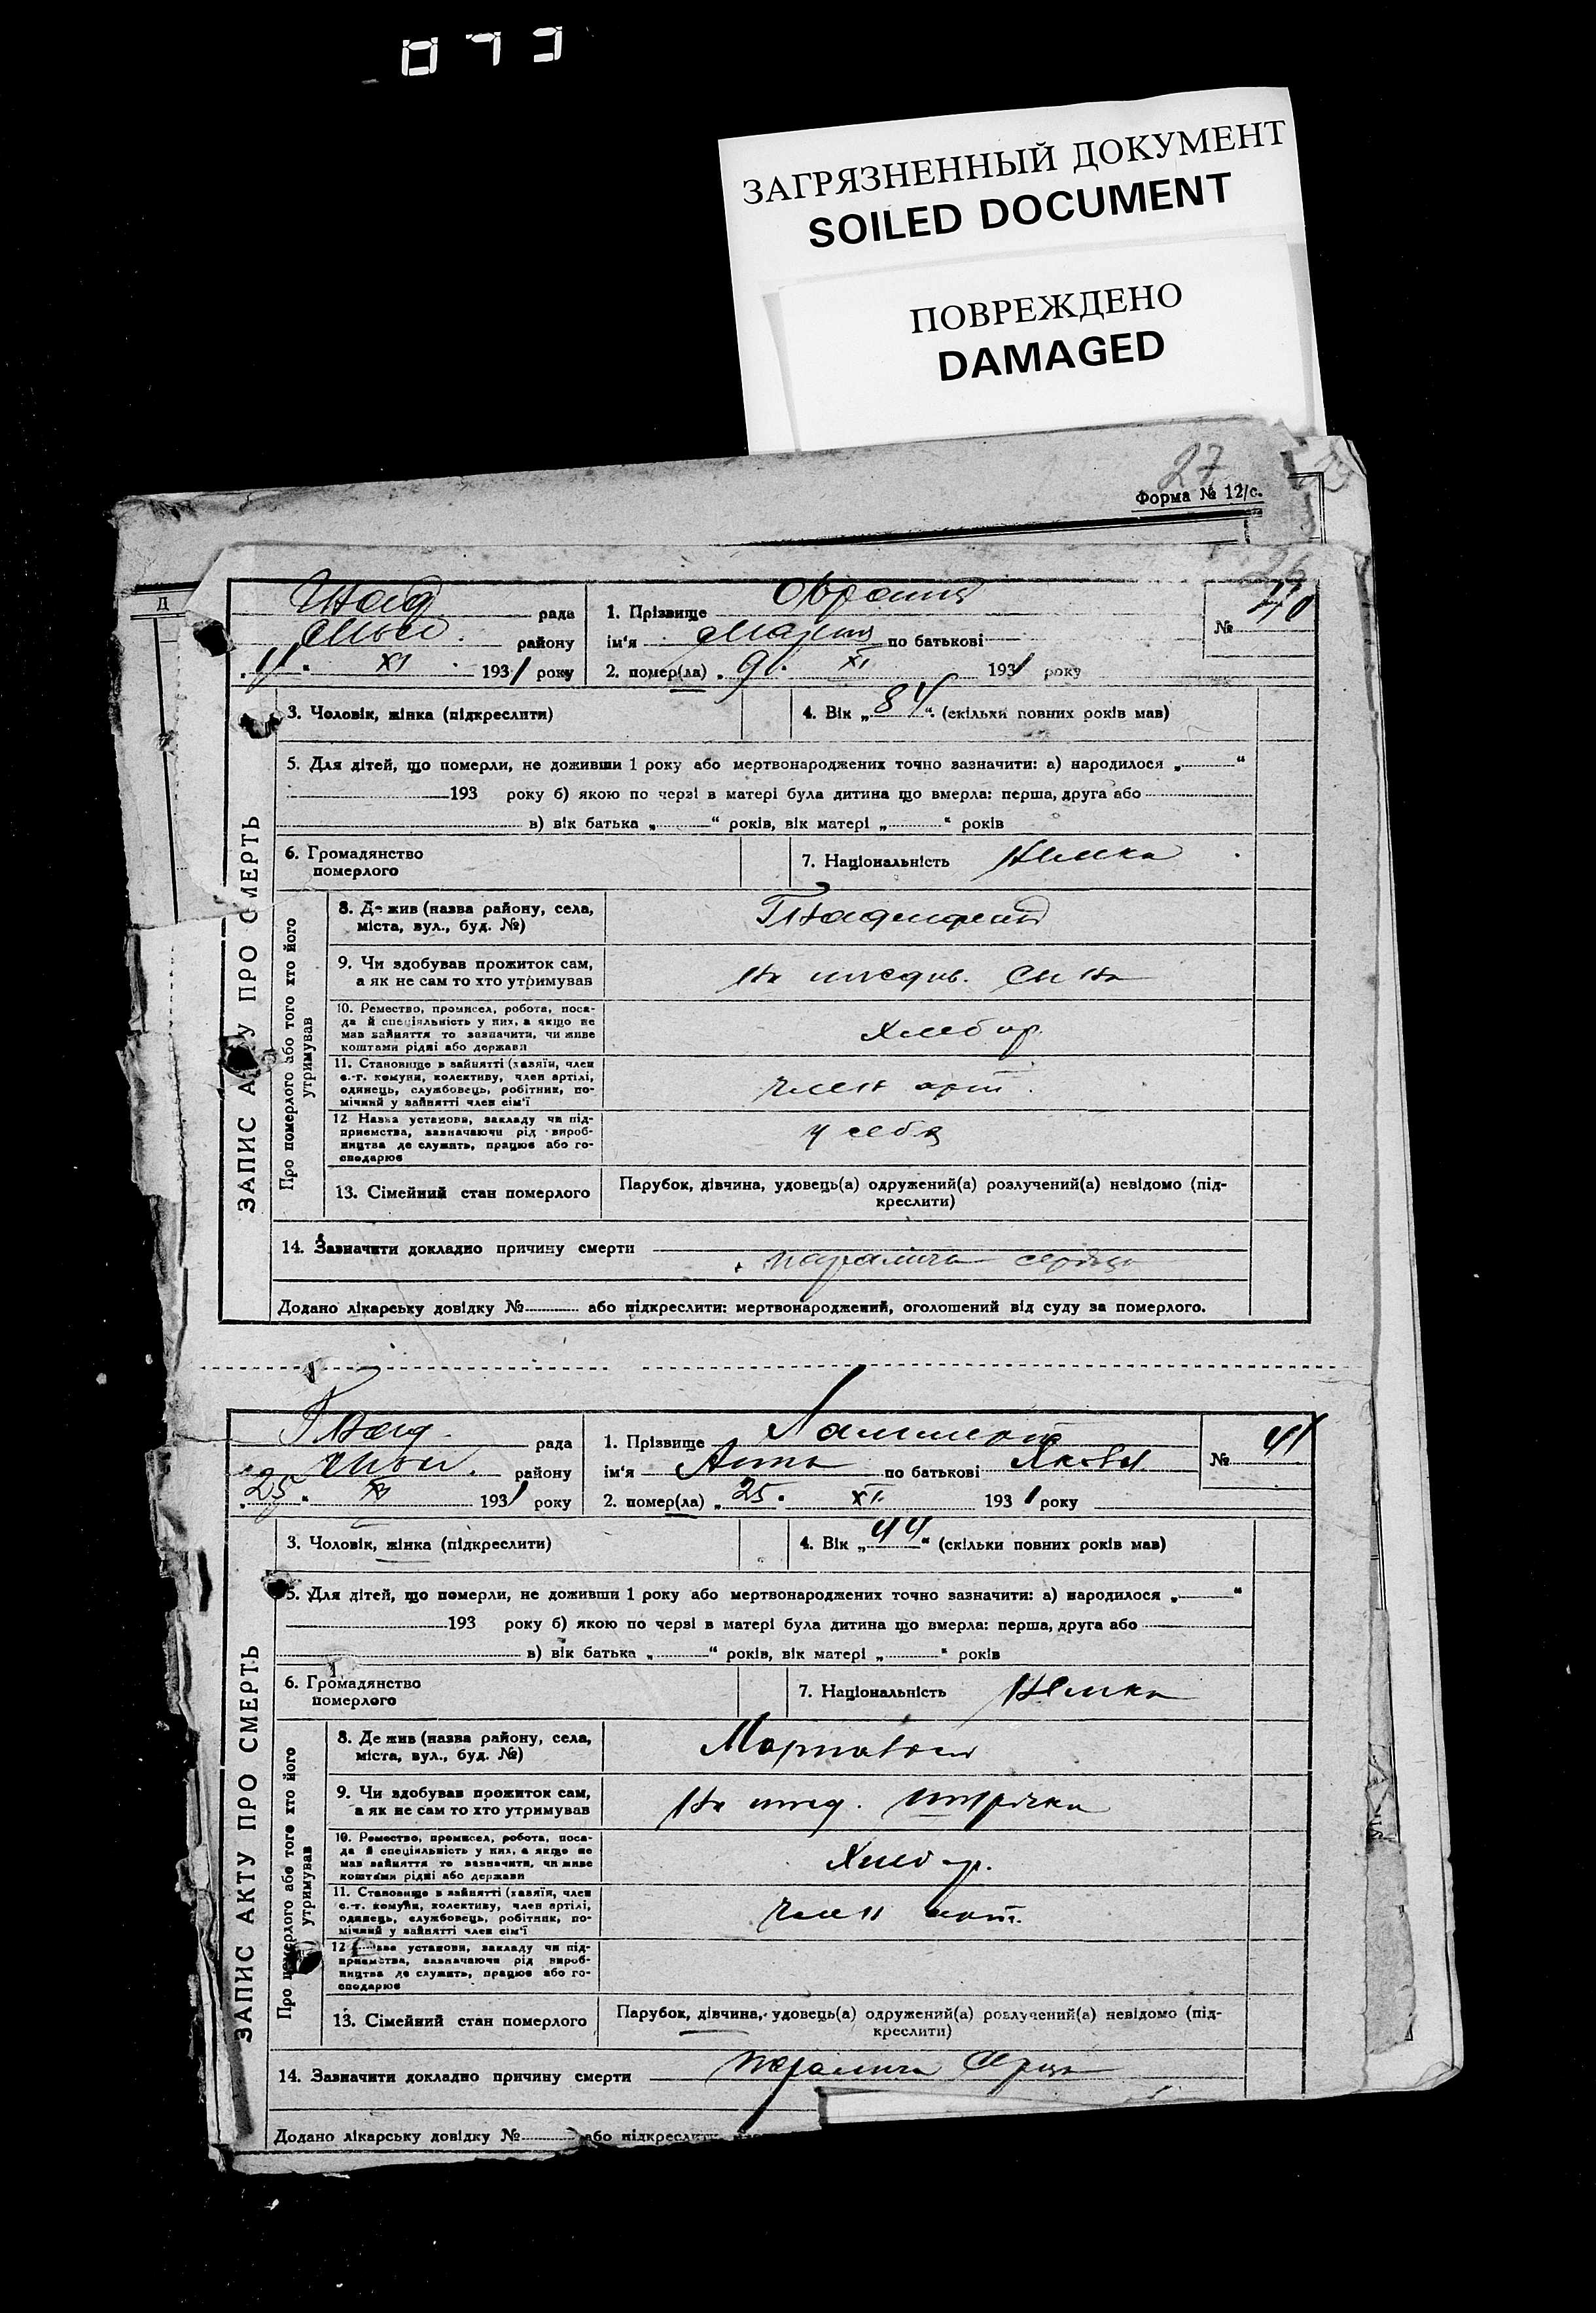 073
ЗАГРЯЗНЕННЫЙ ДОКУМЕНТ
SOILED DOCUMENT
ПОВРЕЖДЕНО
DAMAGED
27
Форма № 12/с.
рада
району
XI 1931 року
1. Прізвище
ім'я по батькові
2. помер(ла) „9" XI 1931 року
№ 40
ЗАПИС АКТУ ПРО СМЕРТЬ
3. Чоловік, жінка (підкреслити)
4. Вік „84" (скільки повних років мав)
5. Для дітей, що померли, не доживши 1 року або мертвонароджених точно зазначити: а) народилося „ "
193 року б) якою по черзі в матері була дитина що вмерла: перша, друга або
в) вік батька „ " років, вік матері „ " років
6. Громадянство
померлого
7. Національність Немка
Про померлого або того хто його
утримував
8. Де жив (назва району, села,
міста, вул., буд. №)
Гнаденфельд
9. Чи здобував прожиток сам,
а як не сам то хто утримував
На иждив. сына
10. Ремество, промисел, робота, поса-
да й спеціяльність у них, а якщо не
мав зайняття то зазначити, чи живе
коштами рідні або держави
Хлебор.
11. Становище в зайнятті (хазяїн, член
с.-г. комуни, колективу, член артілі,
одинець, службовець, робітник, по-
мічний у зайнятті член сім'ї
член арт.
12 Назва установи, закладу чи під-
приємства, зазначаючи рід вироб-
ництва де служить, працює або го-
сподарює
у себя
13. Сімейний стан померлого
Парубок, дівчина, удовець(а) одружений(а) розлучений(а) невідомо (під-
креслити)
14. Зазначити докладно причину смерти паралич сердца
Додано лікарську довідку № або підкреслити: мертвонароджений, оголошений від суду за померлого.
Гнад. рада
району
„25" XI 1931 року
1. Прізвище
ім'я Анна по батькові Яковл.
2. помер(ла) „25" XI 1931 року
№ 41
ЗАПИС АКТУ ПРО СМЕРТЬ
3. Чоловік, жінка (підкреслити)
4. Вік „44" (скільки повних років мав)
5. Для дітей, що померли, не доживши 1 року або мертвонароджених точно зазначити: а) народилося „ "
193 року б) якою по черзі в матері була дитина що вмерла: перша, друга або
в) вік батька „ " років, вік матері „ " років
6. Громадянство
померлого
7. Національність Немка
Про померлого або того хто його
утримував
8. Де жив (назва району, села,
міста, вул., буд. №)
9. Чи здобував прожиток сам,
а як не сам то хто утримував
На ижд.
10. Ремество, промисел, робота, поса-
да й спеціяльність у них, а якщо не
мав зайняття то зазначити, чи живе
коштами рідні або держави
Хлебор.
11. Становище в зайнятті (хазяїн, член
с.-г. комуни, колективу, член артілі,
одинець, службовець, робітник, по-
мічний у зайнятті член сім'ї
член арт.
12 установи, закладу чи під-
приємства, зазначаючи рід вироб-
ництва де служить, працює або го-
сподарює
13. Сімейний стан померлого
Парубок, дівчина, удовець(а) одружений(а) розлучений(а) невідомо (під-
креслити)
14. Зазначити докладно причину смерти паралич сердца
Додано лікарську довідку № або підкреслити